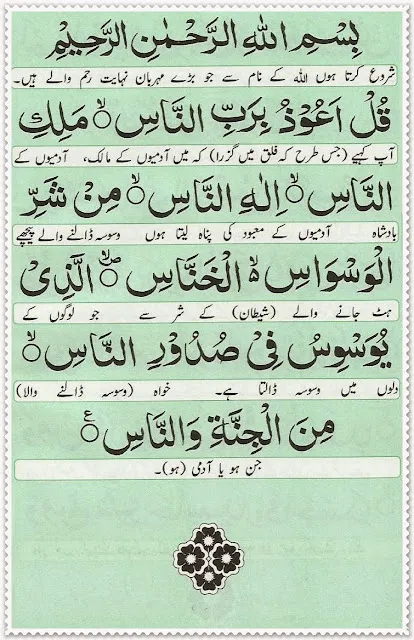 بِسْمِ اللهِ الرَّحْمٰنِ الرَّحِيْمِ
شروع کرتا ہوں اللہ کے نام سے جو بڑے مہربان نہایت رحم والے ہیں۔
قُلْ اَعُوْذُ بِرَبِّ النَّاسِ ۙ مَلِكِ
آپ کہیے (جس طرح کہ فلق میں گزرا) کہ میں آدمیوں کے مالک، آدمیوں کے
النَّاسِ ۙ اِلٰهِ النَّاسِ ۙ مِنْ شَرِّ
بادشاہ آدمیوں کے معبود کی پناہ لیتا ہوں وسوسہ ڈالنے والے پیچھے
الْوَسْوَاسِ ۙ۬ الْخَنَّاسِ ۪ۙ الَّذِیْ
ہٹ جانے والے (شیطان) کے شر سے جو لوگوں کے
یُوَسْوِسُ فِیْ صُدُوْرِ النَّاسِ ۙ
دلوں میں وسوسہ ڈالتا ہے۔ خواہ (وسوسہ ڈالنے والا)
مِنَ الْجِنَّةِ وَالنَّاسِ ۠
جن ہو یا آدمی (ہو)۔